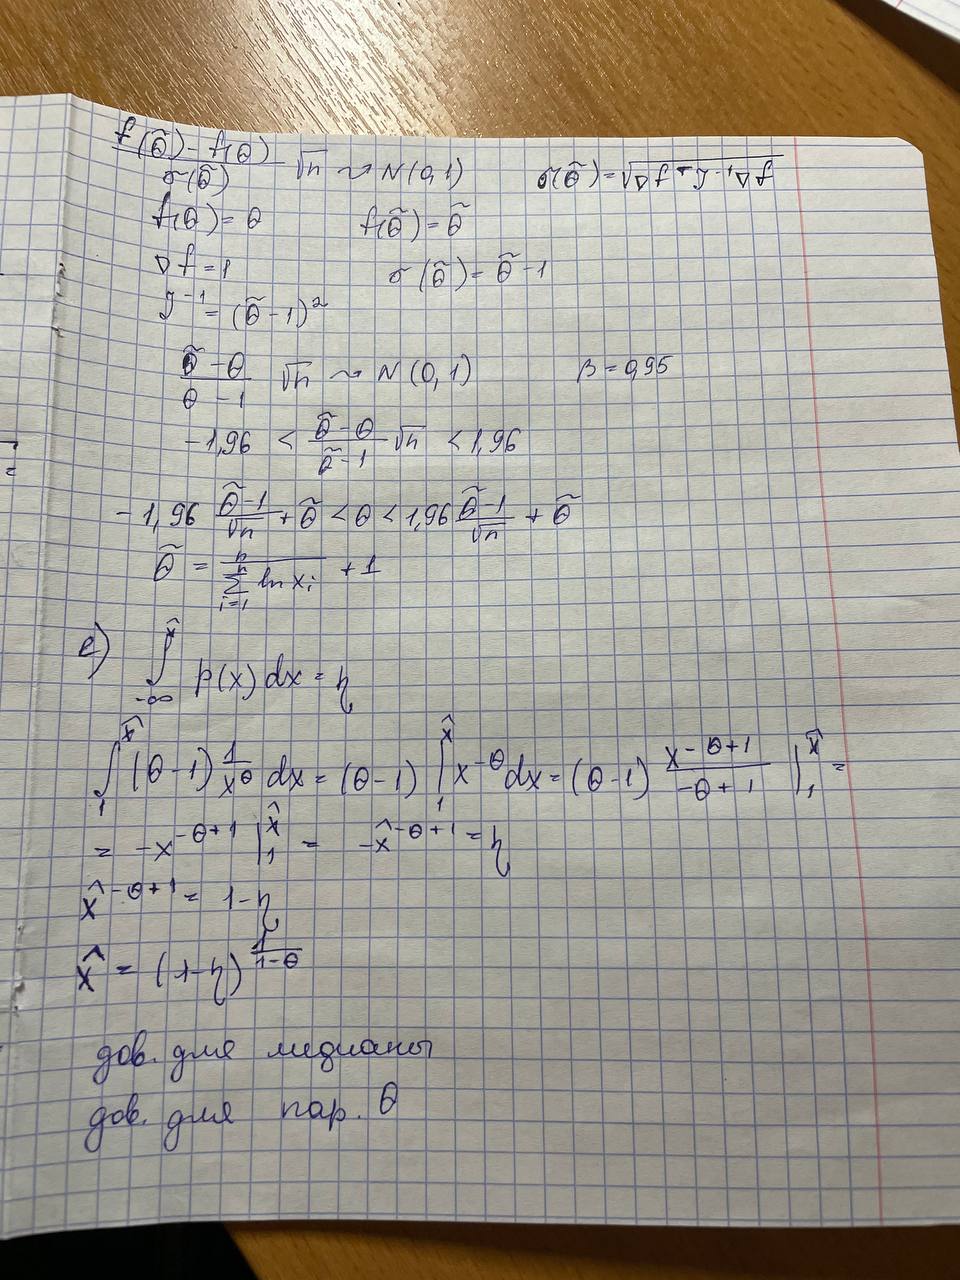 f(θ̃) - f(θ) / σ(θ̃) √n ~ N(0,1) σ(θ̃) = √(∇f ᵀ I⁻¹ ∇f)
f(θ) = θ f(θ̃) = θ̃
∇f = 1 σ(θ̃) = θ̃ - 1
I⁻¹ = (θ̃ - 1)²
(θ̃ - θ)/(θ - 1) √n ~ N(0,1) β = 0,95
-1,96 < (θ̃ - θ)/(θ̃ - 1) √n < 1,96
-1,96 (θ̃ - 1)/√n + θ̃ < θ < 1,96 (θ̃ - 1)/√n + θ̃
θ̃ = n/(∑_{i=1}^{n} ln xᵢ) + 1
e) ∫_{-∞}^{x̂} p(x) dx = η
∫_1^{x̂} (θ-1) 1/x^θ dx = (θ-1) ∫_1^{x̂} x^{-θ} dx = (θ-1) x^{-θ+1}/(-θ+1) |_1^{x̂} =
= -x^{-θ+1} |_1^{x̂} = -x̂^{-θ+1} = η
x̂^{-θ+1} = 1-η
x̂ = (1-η)^{1/(1-θ)}
дов. для медианы
дов. для пар. θ